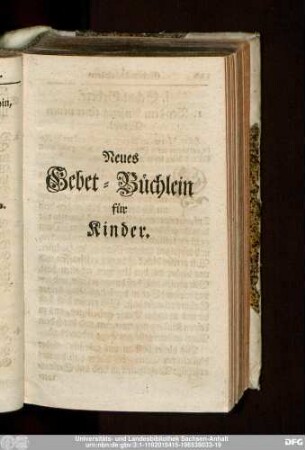 Neues
Gebet-Büchlein
für
Kinder.
Universitäts- und Landesbibliothek Sachsen-Anhalt
urn:nbn:de:gbv:3:1-1192015415-196538033-19
DFG